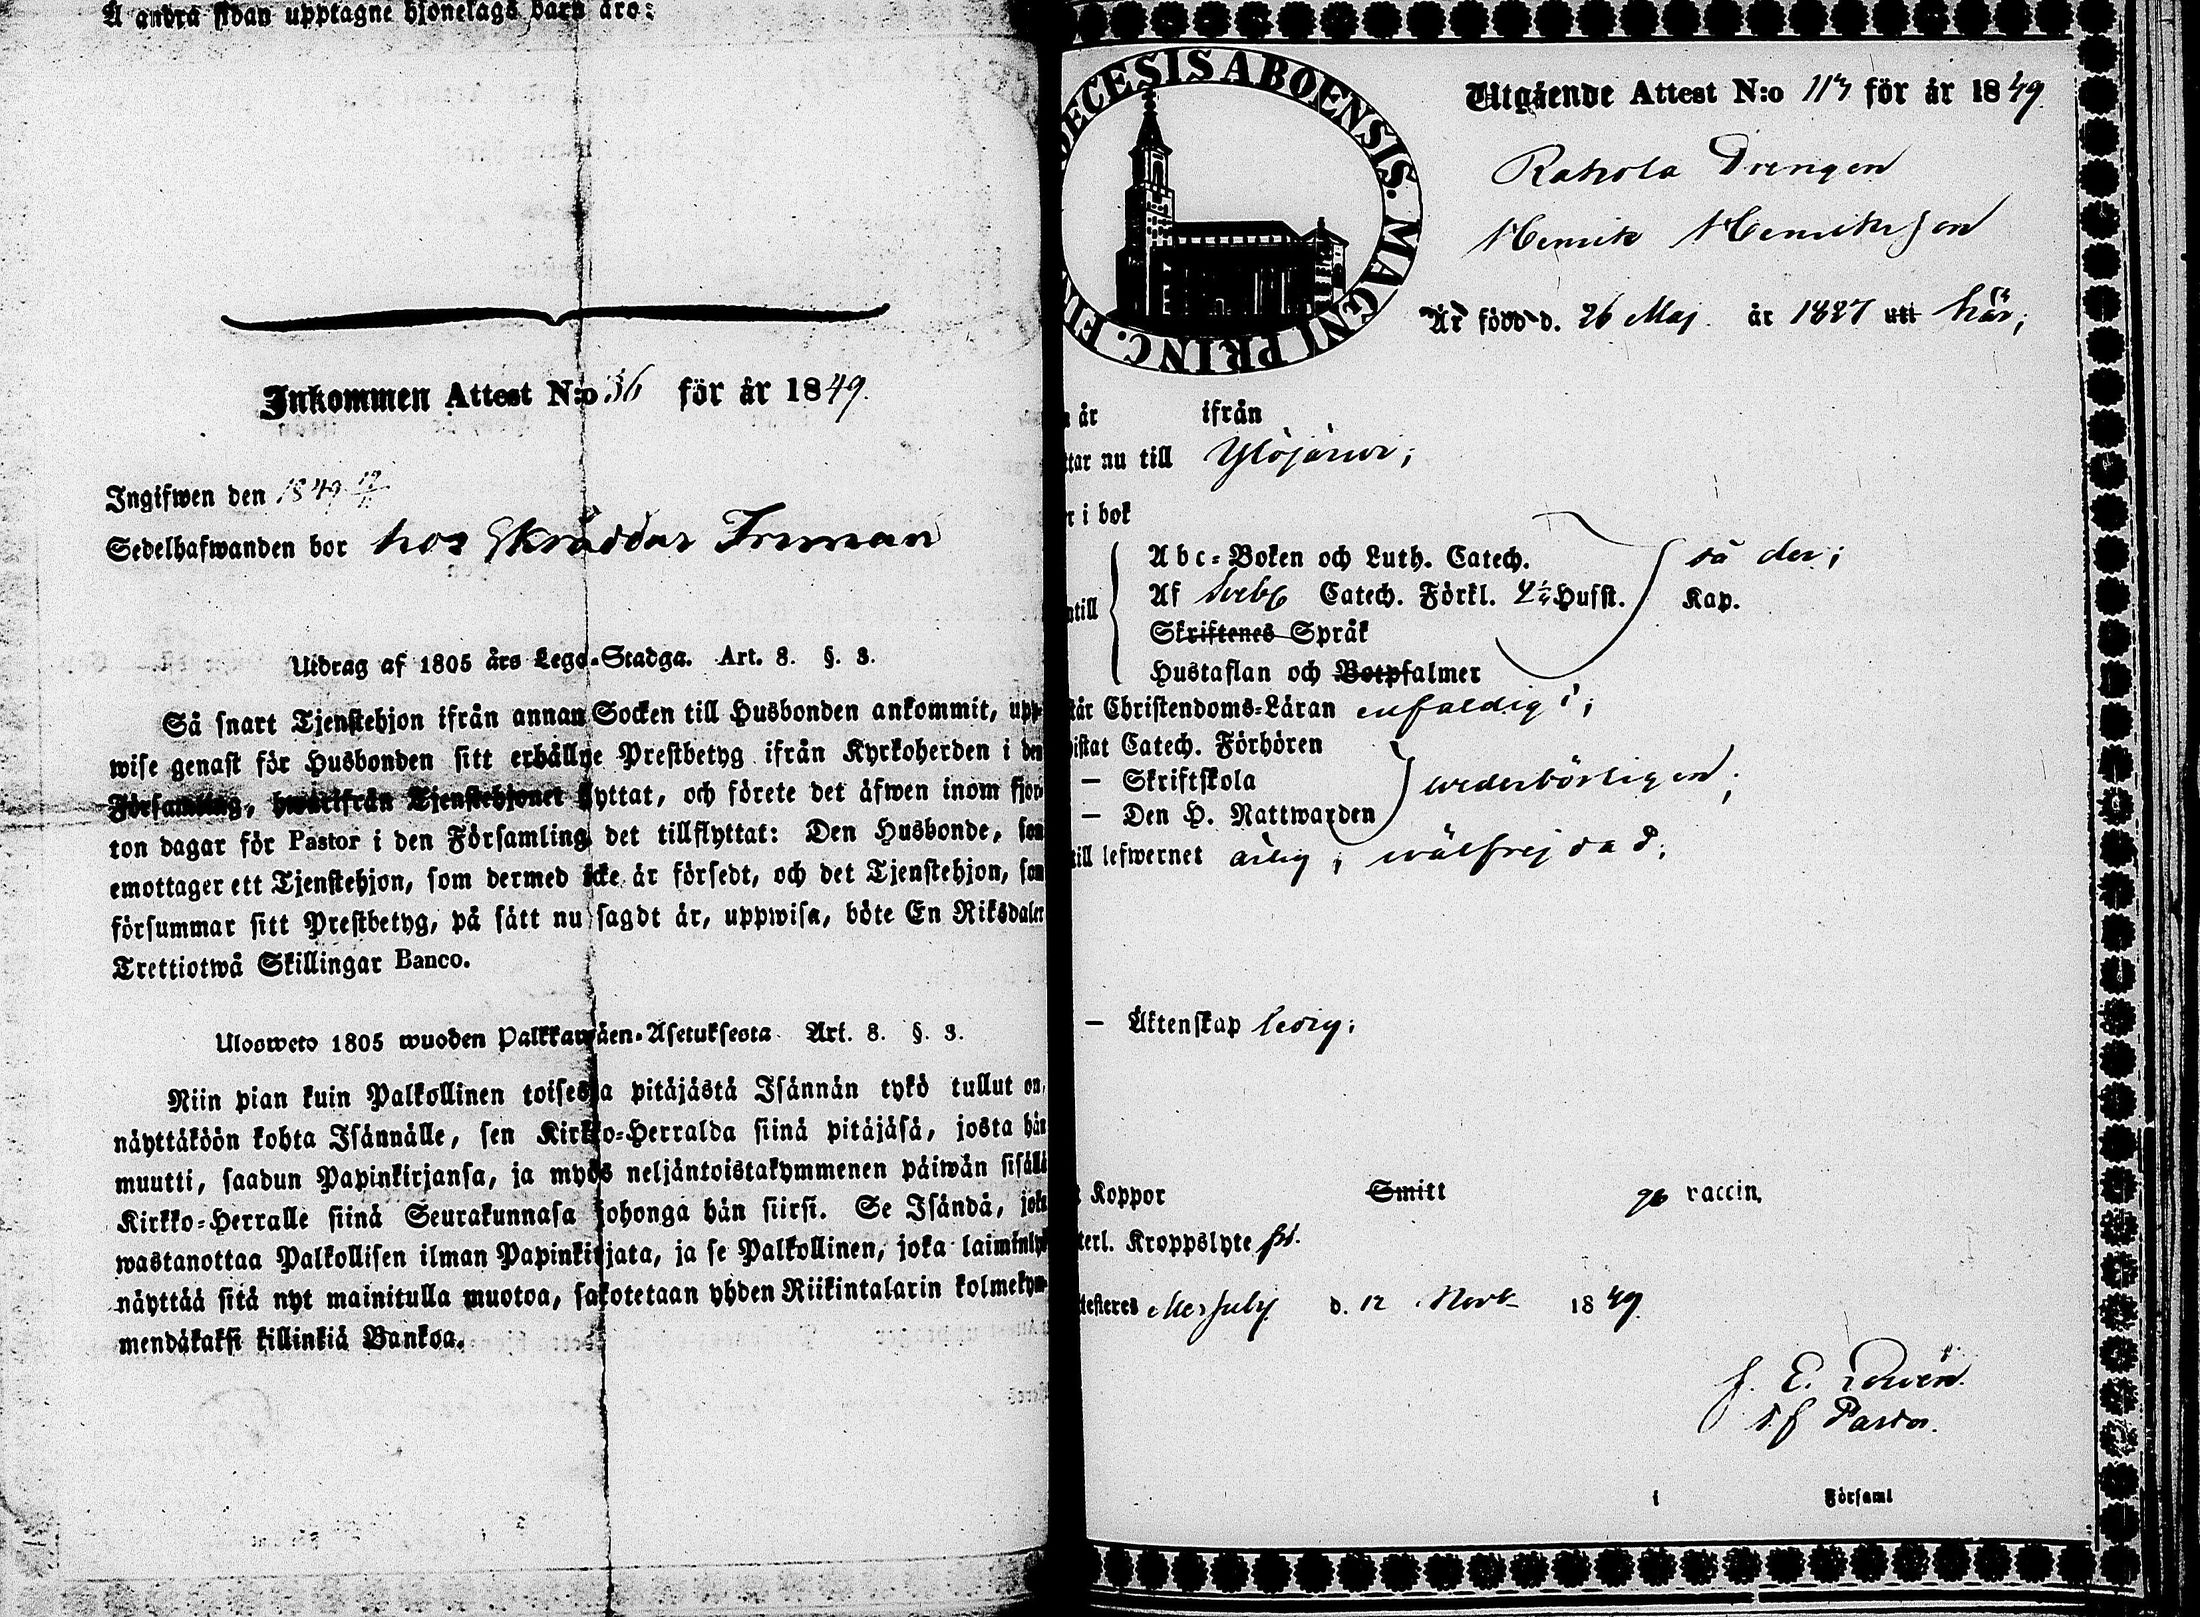 Å andra sidan upptagne hjonelags barn äro:
Inkommen Attest N:o 36 för år 1849.
Ingifwen den 1849
Sedelhafwanden bor hos Skräddar
Utdrag af 1805 års Lego-Stadga. Art. 8. §. 3.
Så snart Tjenstehjon ifrån annan Socken till Husbonden ankommit, upp-
wise genast för Husbonden sitt erhållne Prestbetyg ifrån Kyrkoherden i den
Församling, hwarifrån Tjenstehjonet flyttat, och förete det äfwen inom fjor-
ton dagar för Pastor i den Församling det tillflyttat: Den Husbonde, som
emottager ett Tjenstehjon, som dermed icke är försedt, och det Tjenstehjon, som
försummar sitt Prestbetyg, på sätt nu sagdt är, uppwisa, böte En Riksdaler
Trettiotwå Skillingar Banco.
Ulosweto 1805 wuoden Palkkawäen-Asetuksesta Art. 8. §. 3.
Niin pian kuin Palkollinen toisesta pitäjästä Isännän tykö tullut on,
näyttäköön kohta Isännälle, sen Kirkko-Herralda siinä pitäjäsä, josta hän
muutti, saadun Papinkirjansa, ja myös neljäntoistakymmenen päiwän sisällä
Kirkko-Herralle siinä Seurakunnasa johonga hän siirsi. Se Isändä, joka
wastanottaa Palkollisen ilman Papinkirjata, ja se Palkollinen, joka laiminlyö
näyttää sitä nyt mainitulla muotoa, sakotetaan yhden Riikintalarin kolmekym-
mendäkaksi killinkiä Bankoa.
DECESIS ABOENSIS. MAGNI PRINC. FIN
Utgående Attest N:o 113 för år 1849.
Rahola Drengen
Henrik Henriksson
Är född d. 26 Maj år 1827 uti här;
år ifrån
ttar nu till Ylöjärwi;
r i bok
Abc-Boken och Luth. Catech. så der;
Af Sveb Catech. Förkl. Husst. Kap.
till
Skriftenes Språk
Hustaflan och Botpsalmer
tår Christendoms-Läran enfaldigt;
istat Catech. Förhören
— Skriftskola wederbörligen;
— Den H. Nattwarden
till lefwernet ärlig; wälfrejdad;
— Äktenskap ledig;
Koppor Smitt vaccin.
terl. Kroppslyte fri.
testeres Messuby d. 12 Novb 1849.
J. E.
v.f Pastor.
i Församl